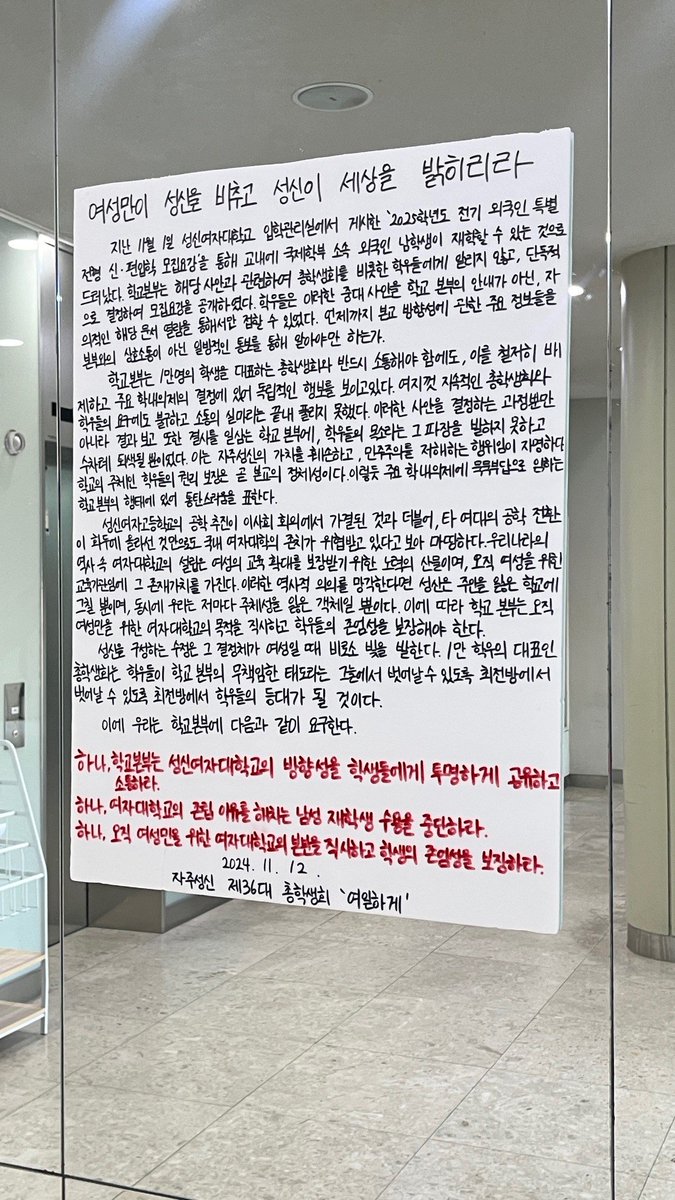 여성만이 성신을 비추고 성신이 세상을 밝히리라
지난 11월 1일 성신여자대학교 입학관리실에서 게시한 '2025학년도 전기 외국인 특별
전형 신·편입학 모집요강'을 통해 교내에 국제학부 소속 외국인 남학생이 재학할 수 있는 것으로
드러났다. 학교본부는 해당 사안과 관련하여 총학생회를 비롯한 학우들에게 알리지 않고, 단독적
으로 결정하여 모집요강을 공개하였다. 학우들은 이러한 중대 사안을 학교 본부의 안내가 아닌, 자
의적인 해당 문서 열람을 통해서만 접할 수 있었다. 언제까지 본교 방향성에 관한 주요 정보들을
본부와의 상호소통이 아닌 일방적인 통보를 통해 알아야만 하는가.
학교본부는 1만명의 학생을 대표하는 총학생회와 반드시 소통해야 함에도, 이를 철저히 배
제하고 주요 학내의제의 결정에 있어 독립적인 행보를 보이고있다. 여지껏 지속적인 총학생회와
학우들의 요구에도 불구하고 소통의 실마리는 끝내 풀리지 못했다. 이러한 사안을 결정하는 과정뿐만
아니라 결과 보고 또한 결시를 일삼는 학교 본부에, 학우들의 목소리는 그 파장을 발하지 못하고
수차례 퇴색될 뿐이었다. 이는 자주성신의 가치를 훼손하고, 민주주의를 저해하는 행위임이 자명하다.
학교의 주체인 학우들의 권리 보장은 곧 본교의 정체성이다. 이렇듯 주요 학내의제에 묵묵부답으로 임하는
학교본부의 행태에 있어 통탄스러움을 표한다.
성신여자고등학교의 공학 추진이 이사회 회의에서 가결된 것과 더불어, 타 여대의 공학 전환
이 화두에 올라선 것만으로도 국내 여자대학의 존치가 위협받고 있다고 보아 마땅하다. 우리나라의
역사 속 여자대학교의 설립은 여성의 교육 확대를 보장받기 위한 노력의 산물이며, 오직 여성을 위한
교육기관임에 그 존재가치를 가진다. 이러한 역사적 의의를 망각한다면 성신은 주인을 잃은 학교에
그칠 뿐이며, 동시에 우리는 저마다 주체성을 잃은 객체일 뿐이다. 이에 따라 학교 본부는 오직
여성만을 위한 여자대학교의 목적을 직시하고 학우들의 존엄성을 보장해야 한다.
성신을 구성하는 수정은 그 결정체가 여성일 때 비로소 빛을 발한다. 1만 학우의 대표인
총학생회는 학우들이 학교 본부의 무책임한 태도라는 그늘에서 벗어날 수 있도록 최전방에서
벗어날 수 있도록 최전방에서 학우들의 등대가 될 것이다.
이에 우리는 학교본부에 다음과 같이 요구한다.
하나, 학교본부는 성신여자대학교의 방향성을 학생들에게 투명하게 공유하고
소통하라.
하나, 여자대학교의 존립 이유를 해치는 남성 재학생 수용을 중단하라.
하나, 오직 여성만을 위한 여자대학교의 본분을 직시하고 학생의 존엄성을 보장하라.
2024. 11. 12.
자주성신 제36대 총학생회 '여일하게'